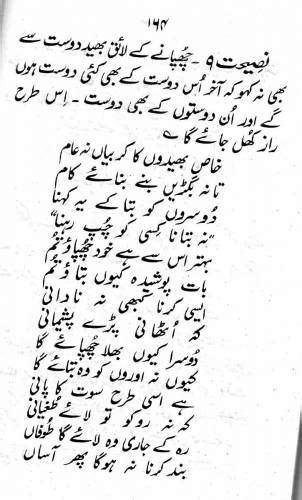 ۱۶۴
نصیحت ۹ ۔ چھپانے کے لائق بھید دوست سے
بھی نہ کہو کہ آخر اُس دوست کے بھی کئی دوست ہوں
گے اور اُن دوستوں کے بھی دوست ۔ اِس طرح
راز کھل جائے گا ؎
خاص بھیدوں کا کر بیاں نہ عام
تا نہ بگڑیں بنے بنائے کام
دُوسروں کو بتا کے یہ کہنا
"نہ بتانا کسی کو چُپ رہنا"
بہتر اس سے ہے خود چھپاؤ تم
بات پوشیدہ کیوں بتاؤ تم
ایسی کرنا کبھی نہ نادانی
کہ اُٹھانی پڑے پشیمانی
دُوسرا کیوں بھلا چُھپائے گا
کیوں نہ اوروں کو وہ بتائے گا
ہے اسی طرح سوت کا پانی
کہ نہ روکو تو لائے طُغیانی
رہ کے جاری وہ لائے گا طوفاں
بند کرنا نہ ہوگا پھر آساں